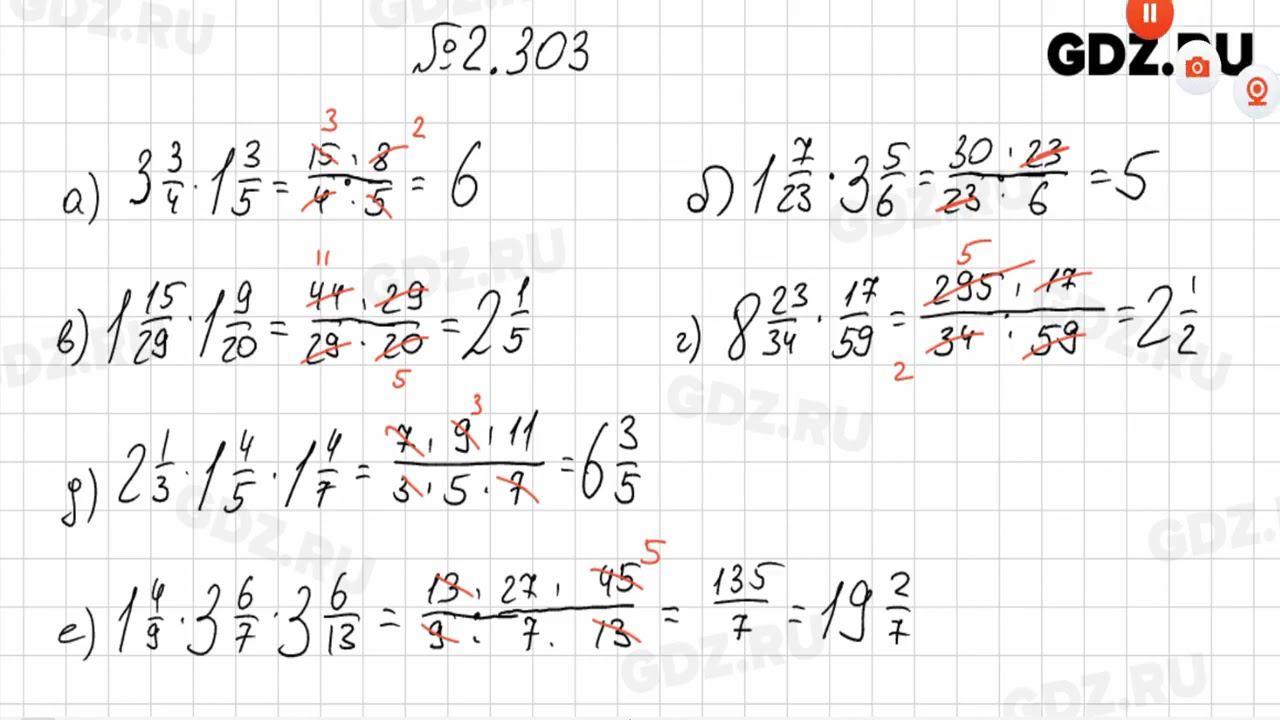 №2.303
GDZ.RU
а) 3 3/4 · 1 3/5 = 15 · 8 / 4 · 5 = 6
3 2
б) 1 7/23 · 3 5/6 = 30 · 23 / 23 · 6 = 5
в) 1 15/29 · 1 9/20 = 44 · 29 / 29 · 20 = 2 1/5
11 5
г) 8 23/34 · 17/59 = 295 · 17 / 34 · 59 = 2 1/2
5 2
д) 2 1/3 · 1 4/5 · 1 4/7 = 7 · 9 · 11 / 3 · 5 · 7 = 6 3/5
3
е) 1 4/9 · 3 6/7 · 3 6/13 = 13 · 27 · 45 / 9 · 7 · 13 = 135/7 = 19 2/7
5